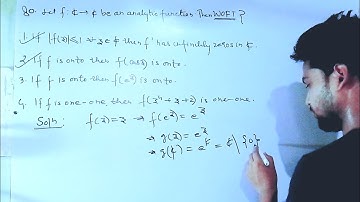 Q0. Let f: ¢→¢ be an analytic function. Then WOFT?
1. If |f(z)|≤1 ∀ z∈¢ then f' has infinitely zeros in ¢.
2. If f is onto then f(cosz) is onto.
3. If f is onto then f(e^z) is onto.
4. If f is one-one then f(z^4+z+2) is one-one.
Soln: f(z)=z → f(e^z)=e^z
→ g(z)=e^z
→ g(¢) = e^¢ = ¢\{0}